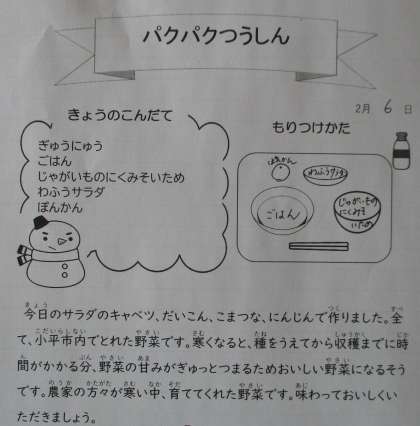 パクパクつうしん
2月 6 日
きょうのこんだて
ぎゅうにゅう
ごはん
じゃがいものにくみそいため
わふうサラダ
ぽんかん
もりつけかた
ぽんかん
わふうサラダ
ごはん
じゃがいもの
にくみそ
いため
今日のサラダのキャベツ、だいこん、こまつな、にんじんで作りました。全
て、小平市内でとれた野菜です。寒くなると、種をうえてから収穫までに時
間がかかる分、野菜の甘みがぎゅっとつまるためおいしい野菜になるそう
です。農家の方々が寒い中、育ててくれた野菜です。味わっておいしくい
ただきましょう。